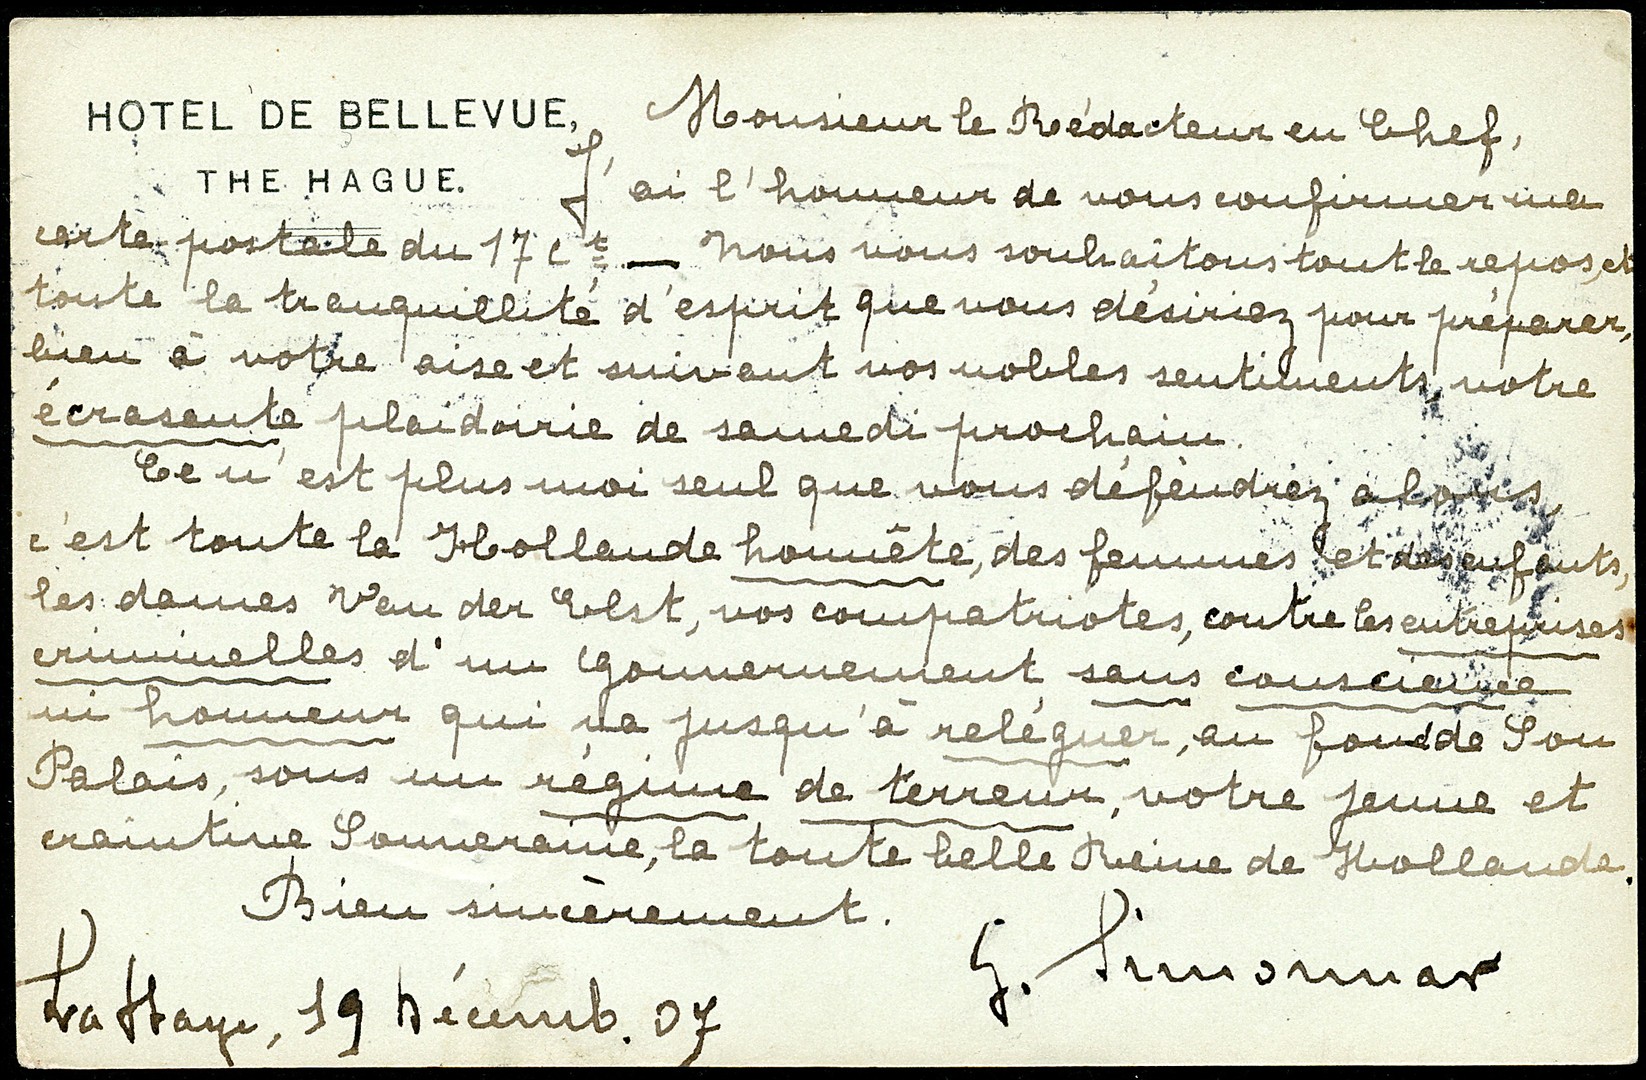 HOTEL DE BELLEVUE,
THE HAGUE.
Monsieur le Rédacteur en Chef,
J'ai l'honneur de vous confirmer ma
carte postale du 17 ct — Nous vous souhaitons tout le repos, et
toute la tranquillité d'esprit que vous désiriez pour préparer,
bien à votre aise et suivant vos nobles sentiments, votre
écrasante plaidoirie de samedi prochain.
Ce n'est plus moi seul que vous défendrez alors,
c'est toute la Hollande honnête, des femmes et des enfants,
les dames Van der Elst, vos compatriotes, contre les entreprises
criminelles d'un Gouvernement sans conscience
ni honneur qui va jusqu'à reléguer, au fond de Son
Palais, sous un régime de terreur, votre jeune et
craintive Souveraine, la toute belle Reine de Hollande.
Bien sincèrement.
La Haye, 19 Décemb. 07
G.